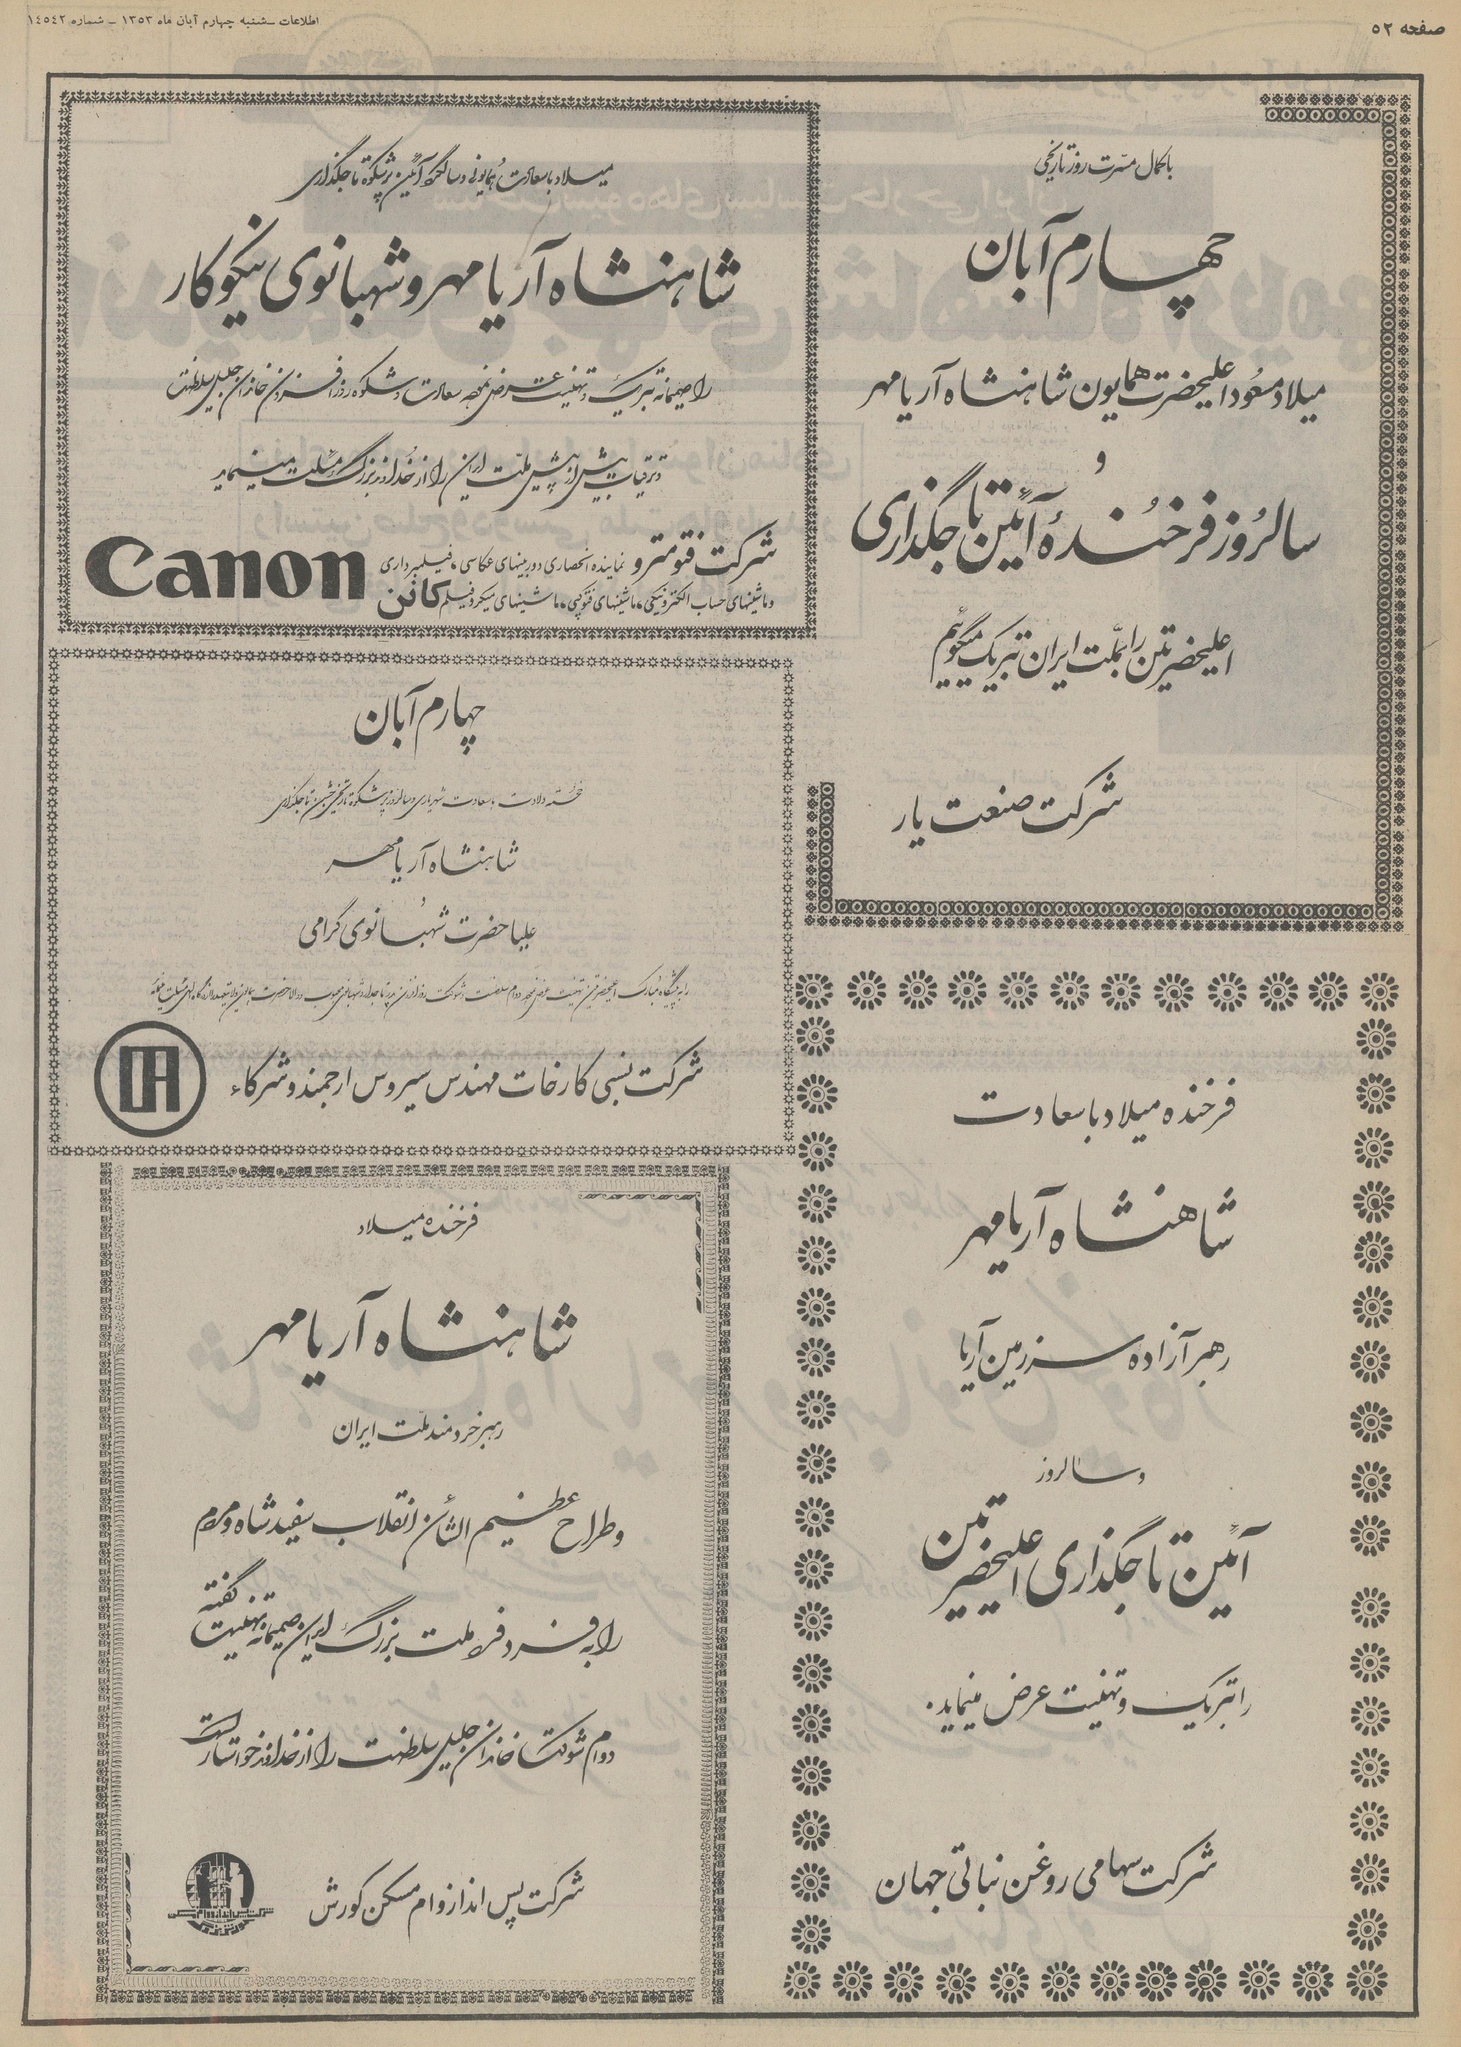 صفحه ۵۲
اطلاعات ـ شنبه چهارم آبان ماه ۱۳۵۳ ـ شماره ۱٤٥٤۲
با کمال مسرت روز تاریخی
چهارم آبان
میلاد مسعود اعلیحضرت همایون شاهنشاه آریامهر
و
سالروز فرخنده آئین تاجگذاری
اعلیحضرتین را بملت ایران تبریک میگوئیم
شرکت صنعت یار
میلاد با سعادت همایونی و سالگرد آئین پرشکوه تاجگذاری
شاهنشاه آریامهر و شهبانوی نیکوکار
را صمیمانه تبریک و تهنیت عرض نموده سعادت و شکوه روزافزون خاندان جلیل سلطنت
و ترقیات بیش از پیش ملت ایران را از خداوند بزرگ مسئلت مینماید
شرکت فتومترو نماینده انحصاری دوربینهای عکاسی، فیلمبرداری
و ماشینهای حساب الکترونیکی، ماشینهای فتوکپی، ماشینهای میکروفیلم کانن
Canon
چهارم آبان
خجسته ولادت با سعادت شهریاری و سالروز پرشکوه تاریخی جشن تاجگذاری
شاهنشاه آریامهر
و
علیاحضرت شهبانوی گرامی
شرکت نسبی کارخانجات مهندس سیروس ارجمند و شرکاء
فرخنده میلاد با سعادت
شاهنشاه آریامهر
رهبر آزاده سرزمین آریا
و سالروز
آئین تاجگذاری اعلیحضرتین
را تبریک و تهنیت عرض مینماید.
شرکت سهامی روغن نباتی جهان
فرخنده میلاد
شاهنشاه آریامهر
رهبر خردمند ملت ایران
و طراح عظیم الشأن انقلاب سفید شاه و مردم
را به فرد فرد ملت بزرگ ایران صمیمانه تهنیت گفته
دوام شوکت خاندان جلیل سلطنت را از خداوند خواستار است
شرکت پس انداز و وام مسکن کورش